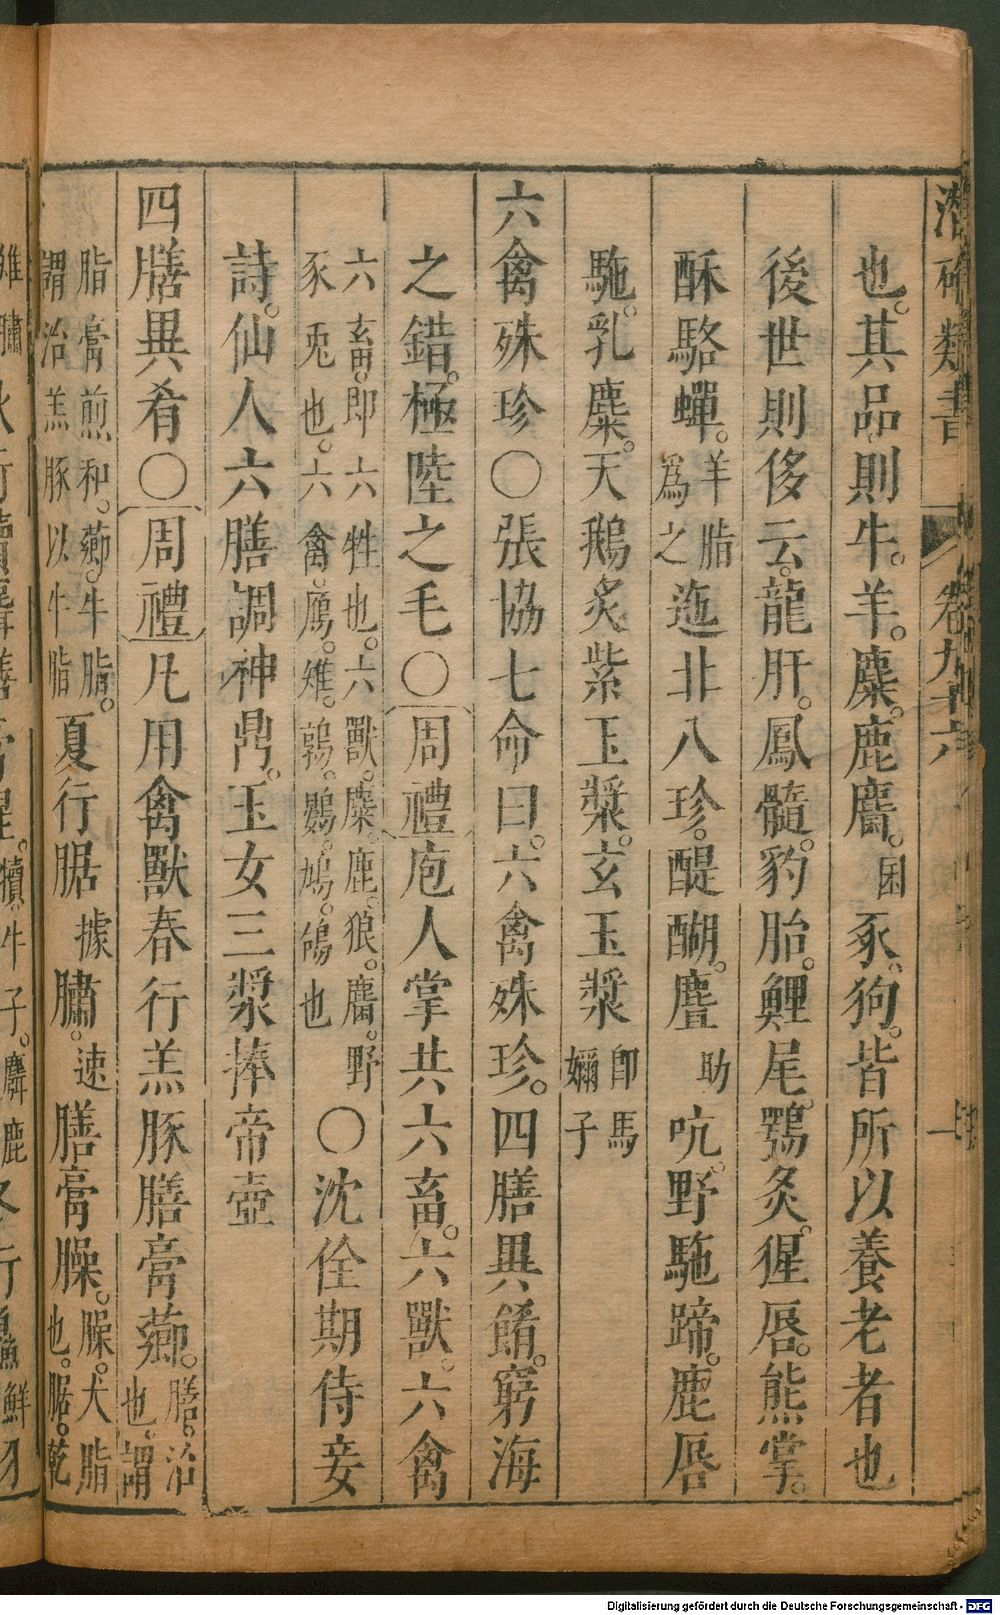 潛確類書 卷九十六 一
也。其品則牛。羊。麋。鹿麕。困豕。狗。皆所以養老者也
後世則侈云。龍肝。鳳髓。豹胎。鯉尾。鶚炙。猩唇。熊掌。
酥駱蟬。羊脂為之迤北八珍。醍醐。麆助吭。野駞蹄。鹿唇
駞。乳麋。天鵝炙紫玉漿。玄玉漿卽馬嬭子
六禽殊珍○張協七命曰。六禽殊珍。四膳異餚。窮海
之錯。極陸之毛○周禮庖人掌共六畜。六獸。六禽
六畜。卽六牲也。六獸。麋。鹿。狼。麕。野豕兎也。六禽。鴈。雉。鶉。鷃。鳩。鴿也○沈佺期侍宴
詩。仙人六膳調神鼎。玉女三漿捧帝壺
四膳異肴○周禮凡用禽獸春行羔豚膳膏薌。膳。治也。謂
脂膏煎和。薌。牛脂。謂治羔豚以牛脂夏行腒據膴。速膳膏臊。臊。犬脂也。腒。乾
雉膴 牛子。麛鹿 鮮
Digitalisierung gefördert durch die Deutsche Forschungsgemeinschaft - DFG